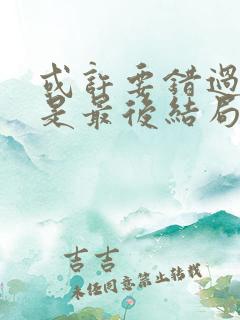 或許要錯過
是最後結局
吉吉
未经同意禁止转载